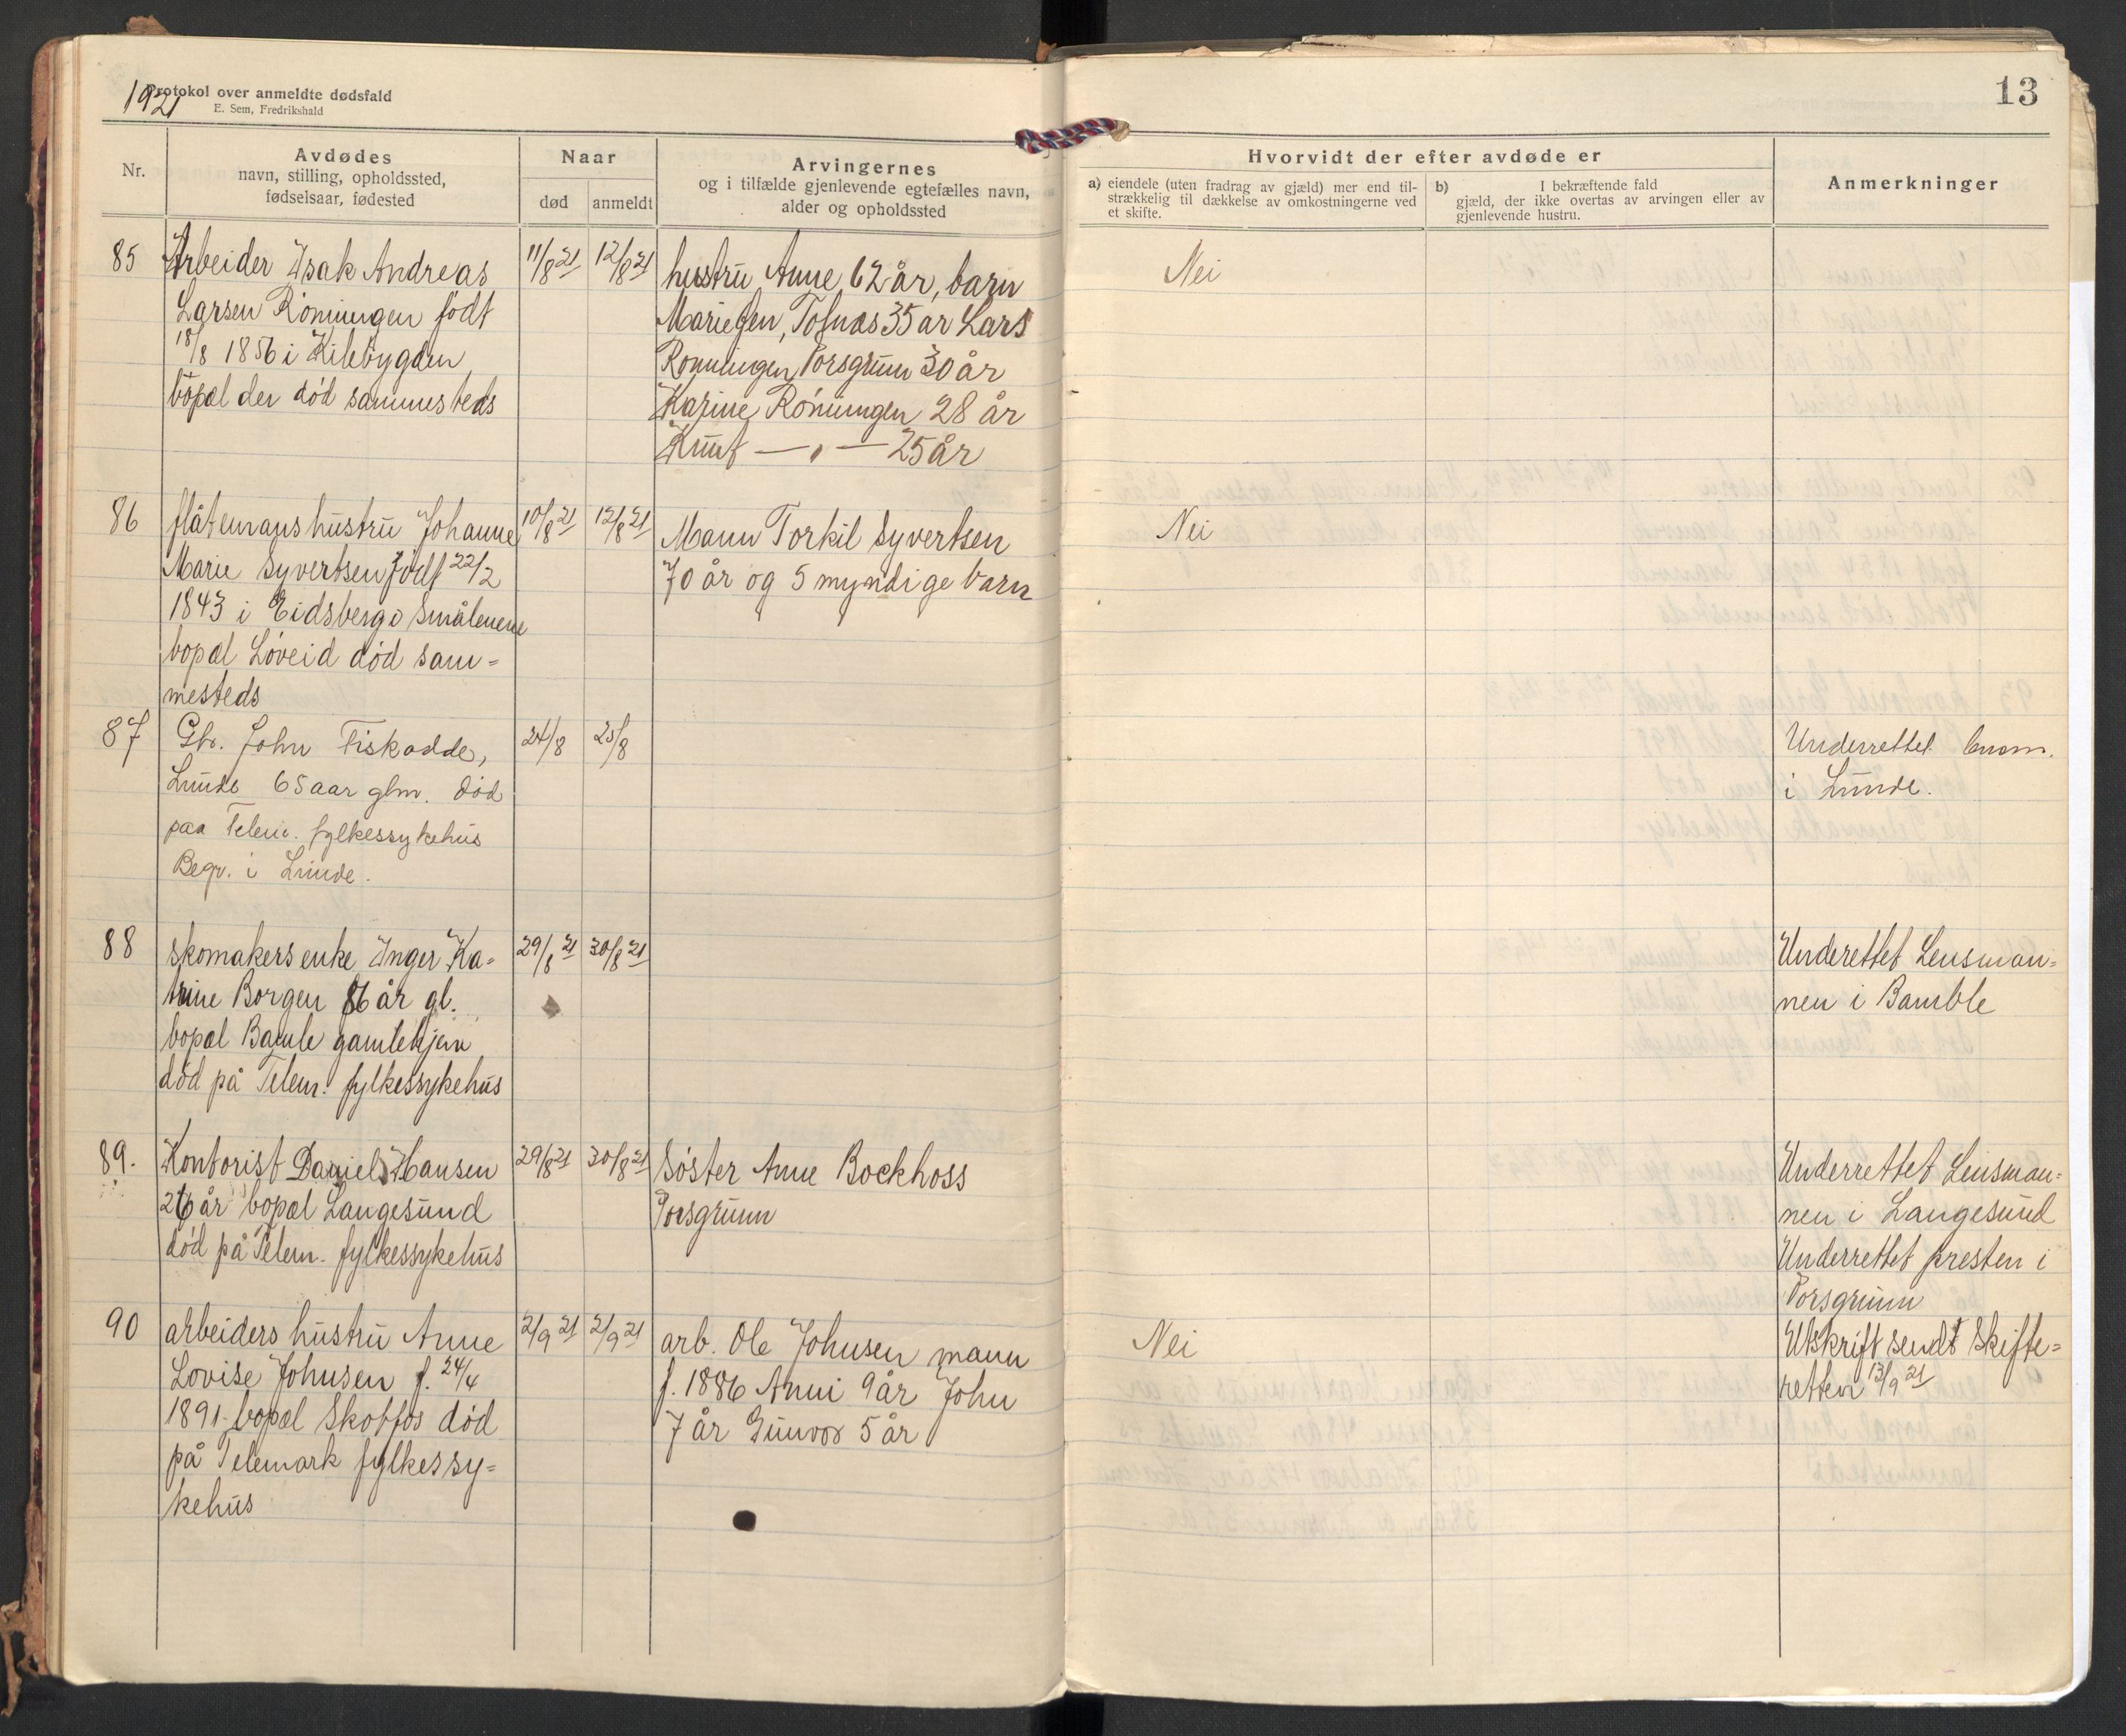 1921
Protokol over anmeldte dødsfald
E. Sem, Fredrikshald
13
Nr.
Avdødes
navn, stilling, opholdssted,
fødselsaar, fødested
Naar
død
anmeldt
Arvingernes
og i tilfælde gjenlevende egtefælles navn,
alder og opholdssted
Hvorvidt der efter avdøde er
a) eiendele (uten fradrag av gjæld) mer end til-
strækkelig til dækkelse av omkostningerne ved
et skifte.
b) I bekræftende fald
gjæld, der ikke overtas av arvingen eller av
gjenlevende hustru.
Anmerkninger
85
Arbeider Isak Andreas
Larsen Rönningen født
18/8 1856 i Kilebygden
bopæl der død sammesteds
11/8 21
12/8 21
hustru Anne 62 år, barn
Tofnes 35 ar Lars
Ronningen Porsgrunn 30 år
Karine Rönningen 28 år
Knut — „ — 25 år
Nei
86
flåtemans hustru Johanne
Marie Syvertsen född 22/2
1843 i Eidsberg Smålenene
bopæl Löveid död sam=
mesteds
10/8 21
12/8 21
Mann Torkil Syvertsen
70 år og 5 myndige barn
Nei
87
Gbr. John Fiskodde,
Lunde 65 aar glm. Död
paa Telem. fylkessykehus
Begr. i Lunde.
24/8
25/8
Underrettet lensm.
i Lunde.
88
skomakers enke Inger Ka=
trine Borgen 86 år gl.
bopæl Bamle gamlehjem
død på Telem. fylkessykehus
29/8 21
30/8 21
Underettet Lensman=
nen i Bamble
89.
Kontorist Daniel Hansen
26 år bopæl Langesund
död på Telem. fylkessykehus
29/8 21
30/8 21
Söster Anne Bockhoss
Porsgrunn
Underrettet Lensman=
nen i Langesund
Underrettet presten i
Porsgrunn
90
arbeiders hustru Anne
Lovise Johnsen f. 24/4
1891 bopæl Skotfos død
på Telemark fylkessy=
kehus
2/9 21
2/9 21
arb. Ole Johnsen mann
f. 1886 Anni 9 år John
7 år Gunvor 5 år
Nei
Utskrift sendt Skifte=
retten 13/9 21